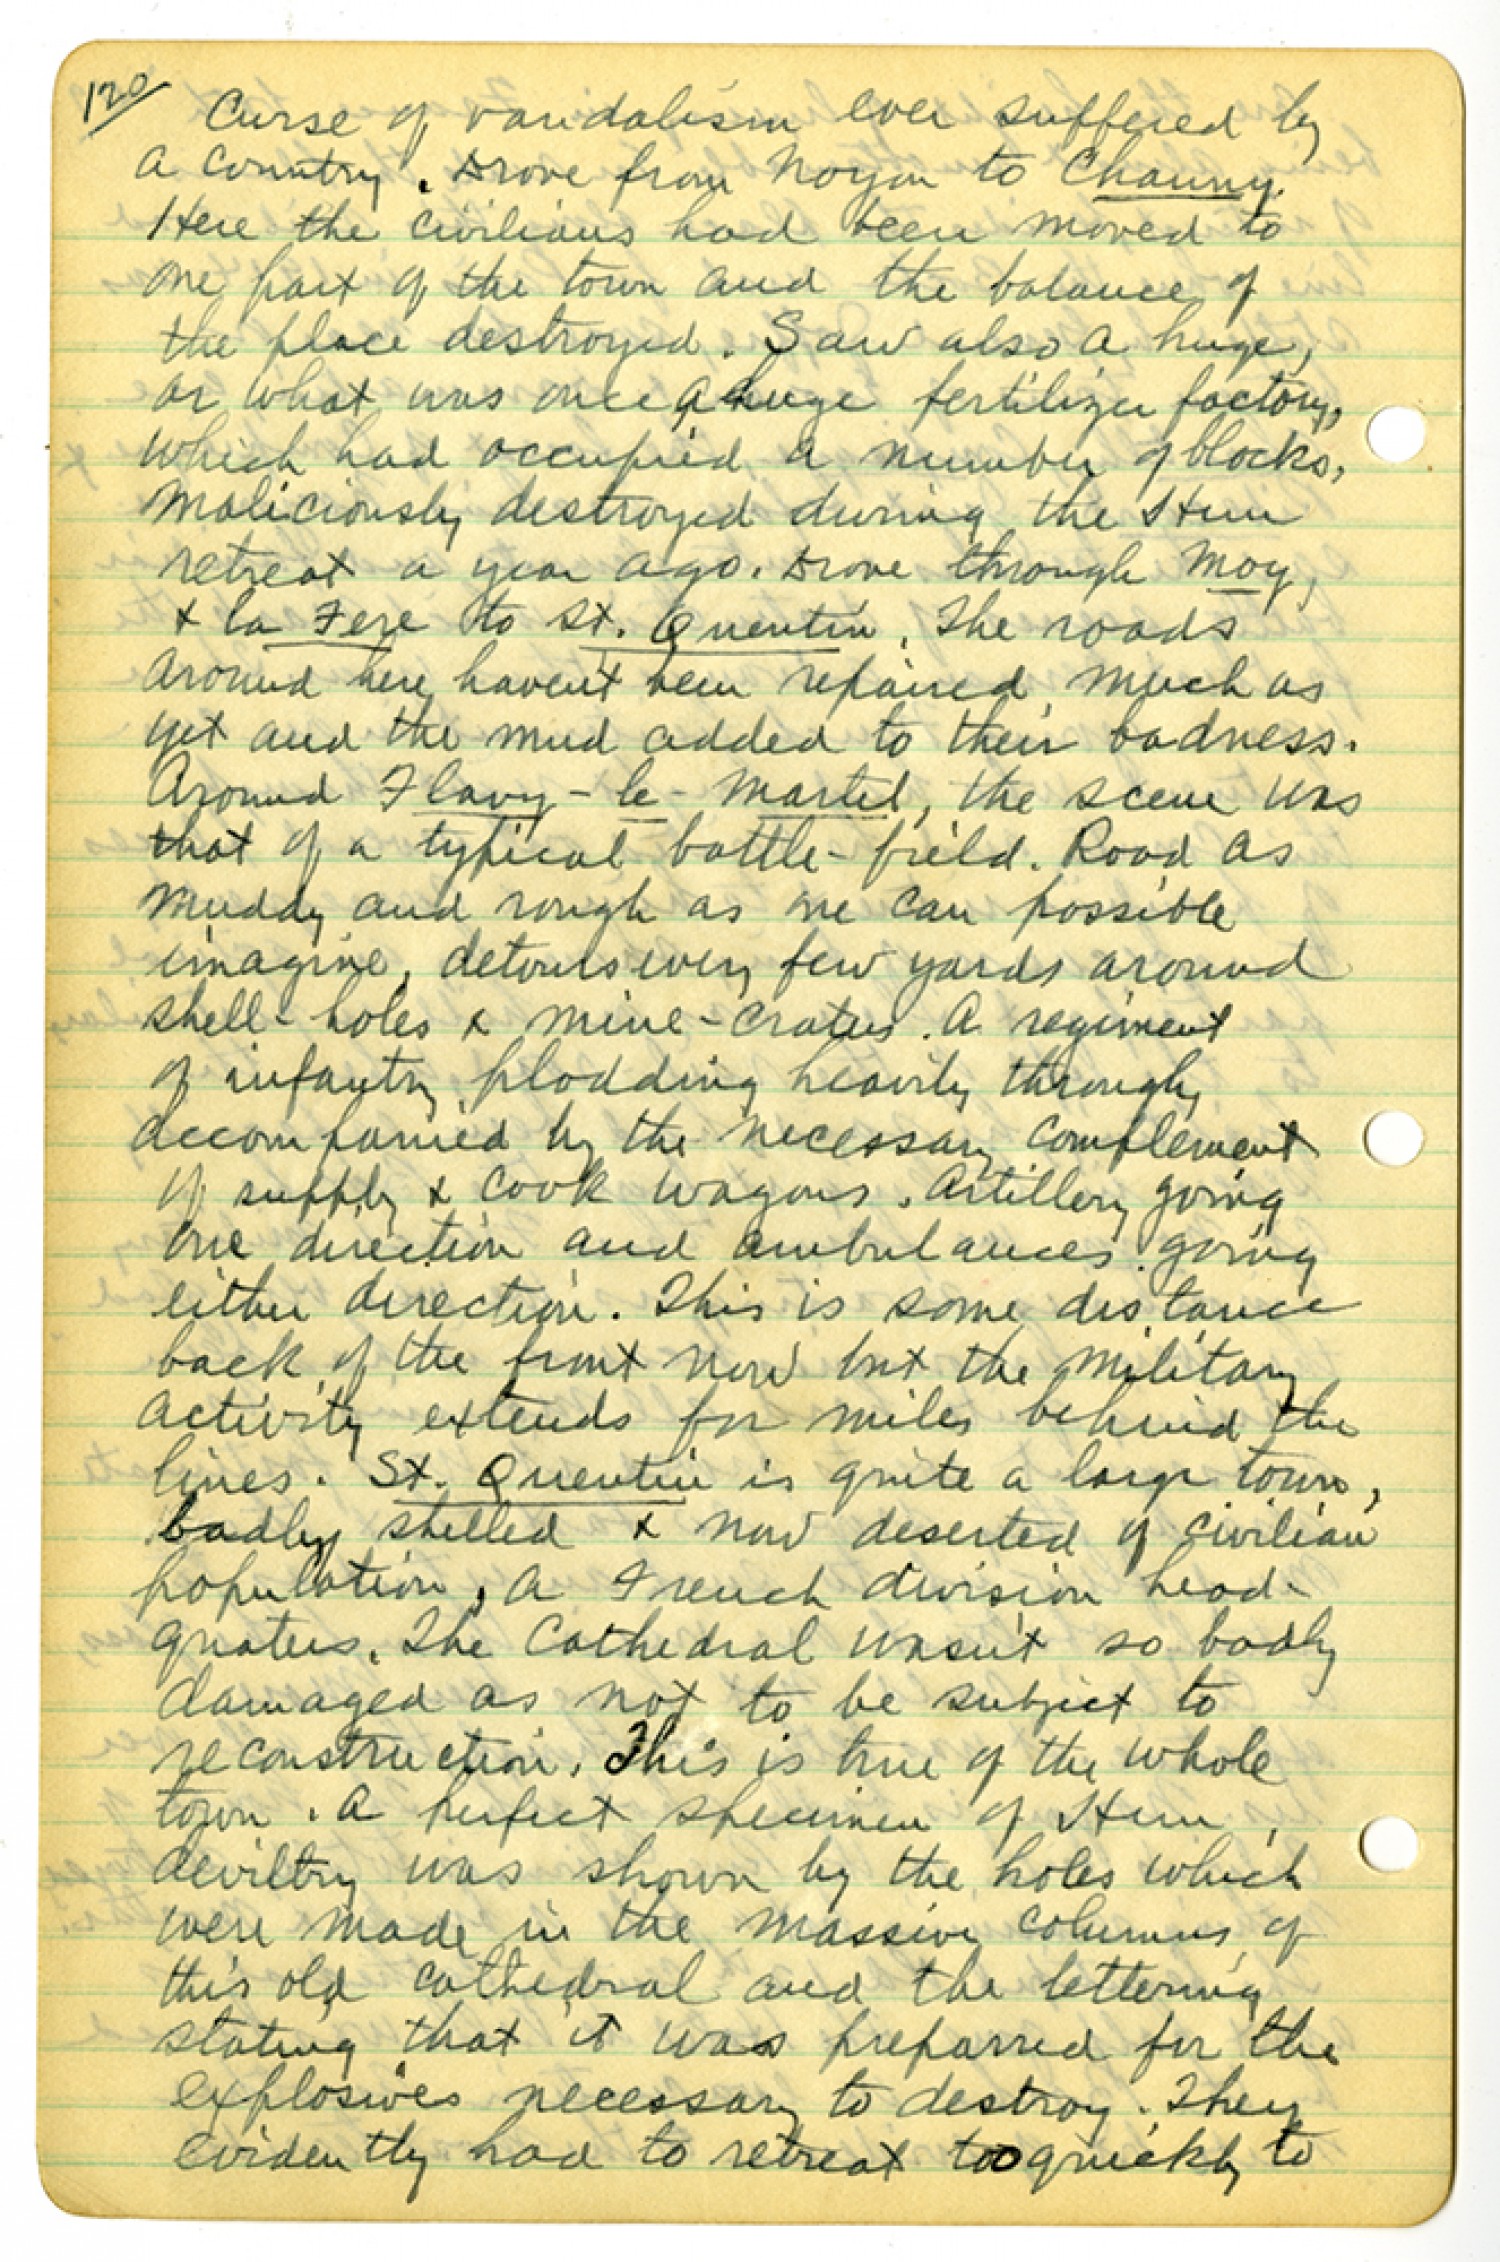 120
Curse of vandalism ever suffered by
a country. Drove from Noyon to Chauny.
Here the civilians had been moved to
one part of the town and the balance of
the place destroyed. Saw also a huge,
or what was once a huge fertilizer factory,
which had occupied a number of blocks,
maliciously destroyed during the Hun
retreat a year ago. Drove through Moy,
& la Fere to St. Quentin. The roads
around here haven't been repaired much as
yet and the mud added to their badness.
Around Flavy-le-Martel, the scene was
that of a typical battle-field. Road as
muddy and rough as one can possible
imagine, detours every few yards around
shell-holes & mine-craters. A regiment
of infantry plodding heavily through,
accompanied by the necessary complement
of supply & cook wagons. Artillery going
one direction and ambulances going
either direction. This is some distance
back of the front now but the military
activity extends for miles behind the
lines. St. Quentin is quite a large town,
badly shelled & now deserted of civilian
population, a French division head-
quaters. The Cathedral wasn't so badly
damaged as not to be subject to
reconstruction. This is true of the whole
town. A perfect specimen of Hun
deviltry was shown by the holes which
were made in the massive columns of
this old cathedral and the lettering
stating that it was preparred for the
explosives necessary to destroy. They
evidently had to retreat too quickly to